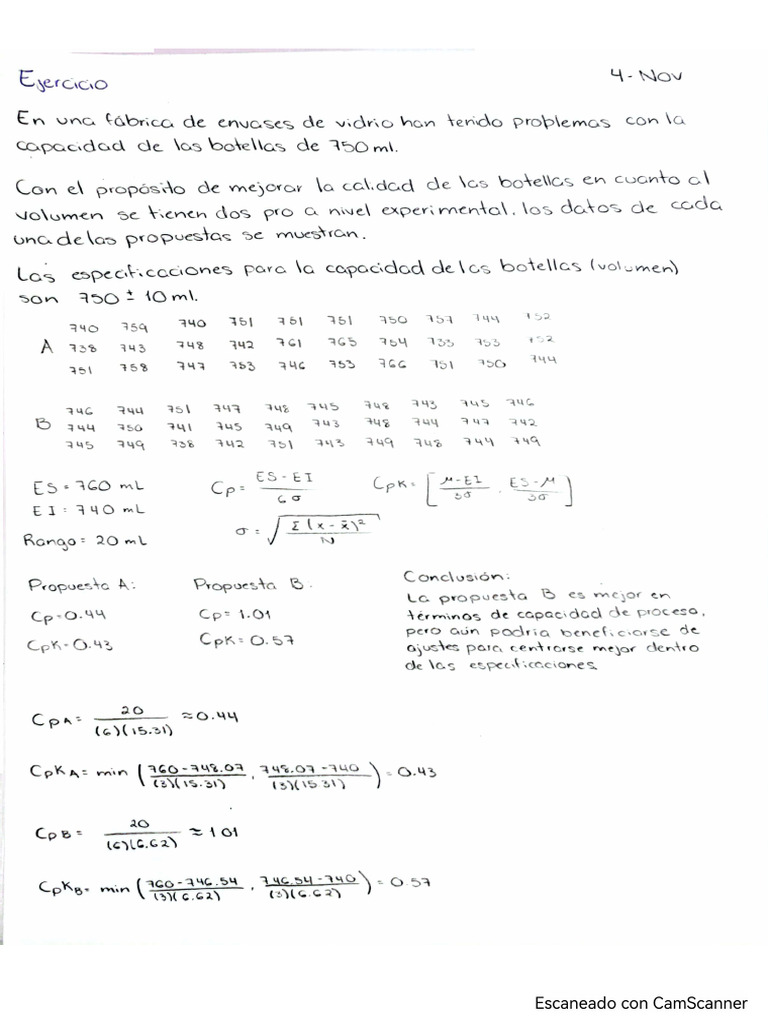 Ejercicio
4-Nov
En una fábrica de envases de vidrio han tenido problemas con la
capacidad de las botellas de 750 ml.
Con el propósito de mejorar la calidad de las botellas en cuanto al
volumen se tienen dos pro a nivel experimental. los datos de cada
una de las propuestas se muestran.
Las especificaciones para la capacidad de las botellas (volumen)
son 750 ± 10 ml.
740 759 740 751 751 751 750 757 744 752
A 738 743 748 742 761 765 754 735 753 752
751 758 747 753 746 753 766 751 750 744
746 744 751 747 748 745 748 743 745 746
B 744 750 741 745 749 743 748 744 747 742
745 749 738 742 751 743 749 748 744 749
ES = 760 mL
EI = 740 mL
Rango = 20 mL
Cp = ES - EI / 6σ
CpK = [μ-EI / 3σ , ES-μ / 3σ]
σ = √Σ(x - x̄)² / N
Propuesta A:
Cp = 0.44
CpK = 0.43
Propuesta B:
Cp = 1.01
CpK = 0.57
Conclusión:
La propuesta B es mejor en
términos de capacidad de proceso,
pero aún podria beneficiarse de
ajustes para centrarse mejor dentro
de las especificaciones.
CpA = 20 / (6)(15.31) ≈ 0.44
CpKA = min (760-748.07 / (3)(15.31) , 748.07-740 / (3)(15.31)) = 0.43
CpB = 20 / (6)(6.62) ≈ 1.01
CpKB = min (760-746.54 / (3)(6.62) , 746.54-740 / (3)(6.62)) = 0.57
Escaneado con CamScanner